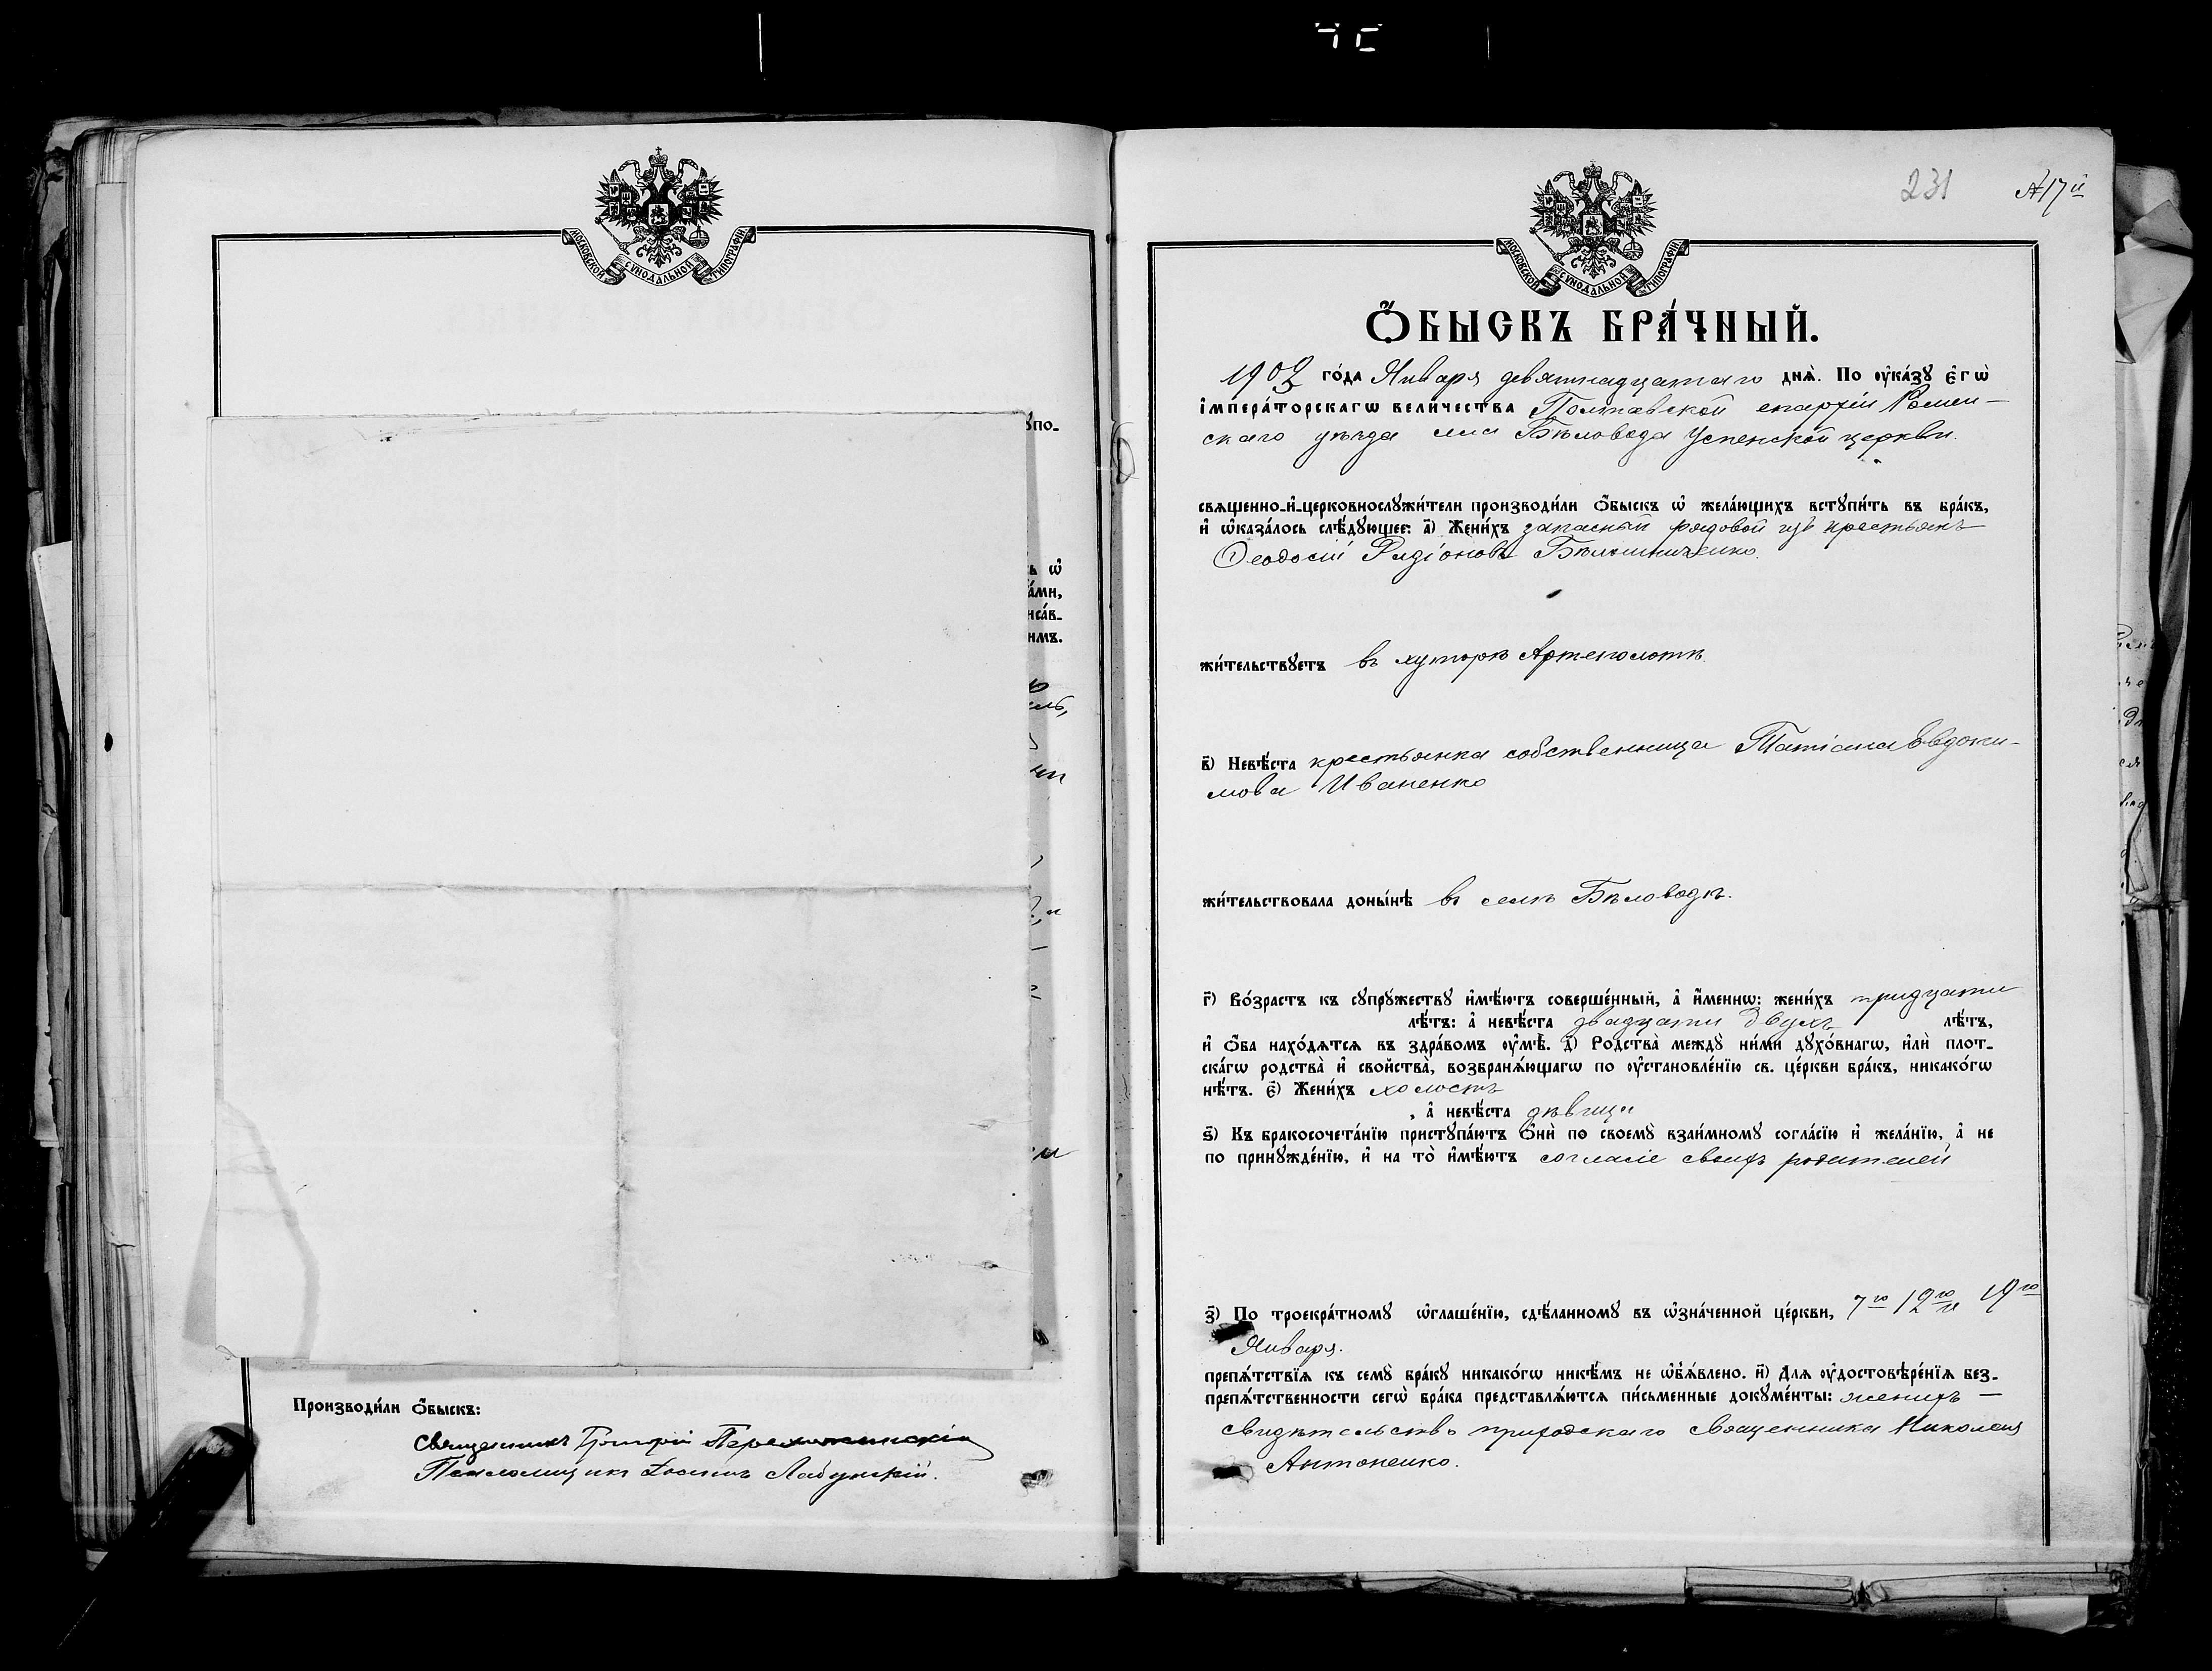 МОСКОВСКОЙ СѴНОДАЛЬНОЙ ТИПОГРАФІИ
ꙋпо-
ъ ѡ
ами,
исав-
имъ.
Производи́ли Ѻ҆́быскъ:
Священникъ Григорій
Псаломщикъ Іоаннъ Лабунскій.
231 №17й
МОСКОВСКОЙ СѴНОДАЛЬНОЙ ТИПОГРАФІИ
Ѻ҆́БЫСКЪ БРА́ЧНЫЙ.
1903 го́да Января девятнадцатаго днѧ̀. По ᲂу҆ка́зꙋ є҆гѡ̀
і҆мпера́торскагѡ вели́чества Полтавской епархіи Ромен-
скаго уѣзда села Бѣловода Успенской церкви.
свѧщенно-и҆-церковнослꙋжи́тели производи́ли Ѻ҆́быскъ ѡ҆ жела́ющихъ встꙋпи́ть въ бра́къ,
и҆ ѡ҆каза́лось слѣ́дꙋющее: а҃) Жени́хъ запасный рядовой изъ крестьянъ
Ѳеодосій Родіоновъ
жи́тельствꙋетъ въ хуторѣ Артеполотѣ.
в҃) Невѣ́ста крестьянка собственница Татіана Евдоки-
мова Иваненко
жи́тельствовала доны́нѣ въ селѣ Бѣловодѣ.
г҃) Во́зрастъ къ сꙋпрꙋ́жествꙋ и҆мѣ́ютъ соверше́нный, а҆ и҆́меннѡ: жени́хъ тридцати
лѣ́тъ: а҆ невѣ́ста двадцати двухъ лѣ́тъ,
и҆ Ѻ҆́ба нахо́дѧтсѧ въ здра́вомъ ᲂу҆мѣ̀. д҃) Родства̀ междꙋ̀ ни́ми дꙋхо́внагѡ, и҆лѝ плот-
ска́гѡ родства̀ и҆ свойства̀, возбранѧ́ющагѡ по ᲂу҆становле́нїю св. це́ркви бра́къ, никако́гѡ
нѣ́тъ. є҃) Жени́хъ холостъ
, а҆ невѣ́ста дѣвица
ѕ҃) Къ бракосочета́нїю пристꙋпа́ютъ Ѻ҆нѝ по своемꙋ̀ взаи́мномꙋ согла́сїю и҆ жела́нїю, а҆ не
по принꙋжде́нїю, и҆ на то̀ и҆мѣ́ютъ согласіе своихъ родителей
з҃) По троекра́тномꙋ ѡ҆глаше́нїю, сдѣ́ланномꙋ въ ѡ҆зна́ченной це́ркви, 7го 12го и 19го
Января.
препѧ́тствїѧ къ семꙋ̀ бра́кꙋ никако́гѡ никѣ́мъ не ѡ҆б̾ѧ́влено. и҃) Длѧ ᲂу҆достовѣре́нїѧ без-
препѧ́тственности сегѡ̀ бра́ка представлѧ́ютсѧ пи́сьменные докꙋме́нты: женихъ —
свидѣтельство приходскаго священника Николая
Антоненко.